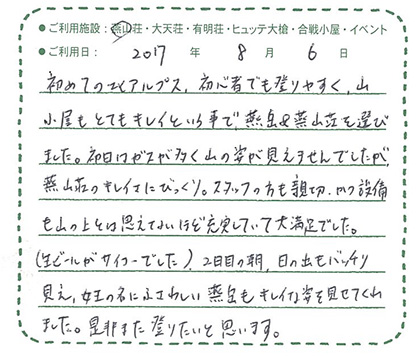 ●ご利用施設：燕山荘・大天荘・有明荘・ヒュッテ大槍・合戦小屋・イベント
●ご利用日： 2017 年 8 月 6 日
初めての北アルプス、初心者でも登りやすく、山
小屋もとてもキレイという事で燕岳&燕山荘を選び
ました。初日はガスが多く山の姿が見えませんでしたが、
燕山荘のキレイさにびっくり。スタッフの方も親切、かつ設備
も山の上とは思えないほど充実していて大満足でした。
(生ビールがサイコーでした)、2日目の朝、日の出もバッチリ
見え、女王の名にふさわしい燕岳もキレイな姿を見せてくれ
ました。是非また登りたいと思います。